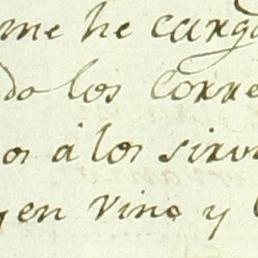 me he carga
do los corre
os á los sirv
en vino y